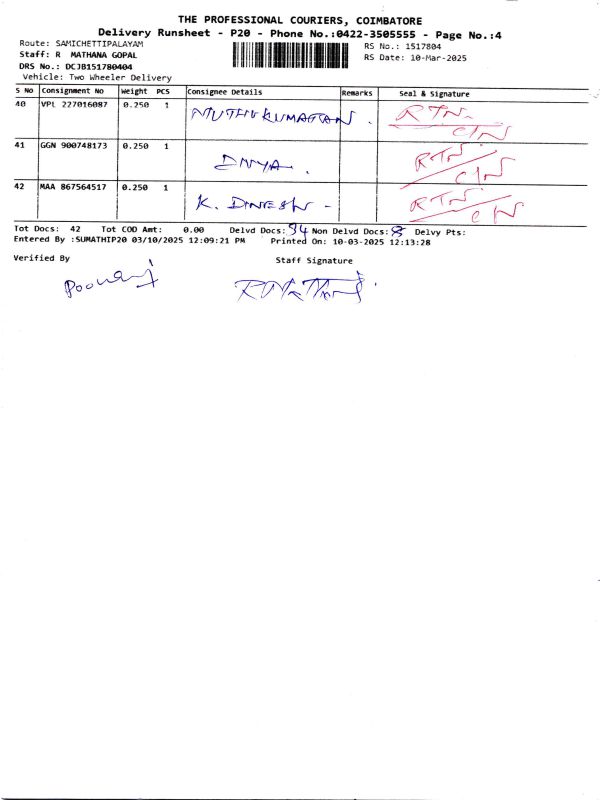 THE PROFESSIONAL COURIERS, COIMBATORE
Delivery Runsheet - P20 - Phone No.:0422-3505555 - Page No.:4
Route: SAMICHETTIPALAYAM
RS No.: 1517804
Staff: R MATHANA GOPAL
RS Date: 10-Mar-2025
DRS No.: DCJB151780404
Vehicle: Two Wheeler Delivery
S No Consignment No Weight PCS Consignee Details Remarks Seal & Signature
40 VPL 227016087 0.250 1 MUTHUKUMARAN . RTN. C/N
41 GGN 900748173 0.250 1 DIVYA . RTN. C/N
42 MAA 867564517 0.250 1 K. DINESH - RTN. C/N
Tot Docs: 42 Tot COD Amt: 0.00 Delvd Docs: 34 Non Delvd Docs: 8 Delvy Pts:
Entered By :SUMATHIP20 03/10/2025 12:09:21 PM Printed On: 10-03-2025 12:13:28
Verified By Staff Signature